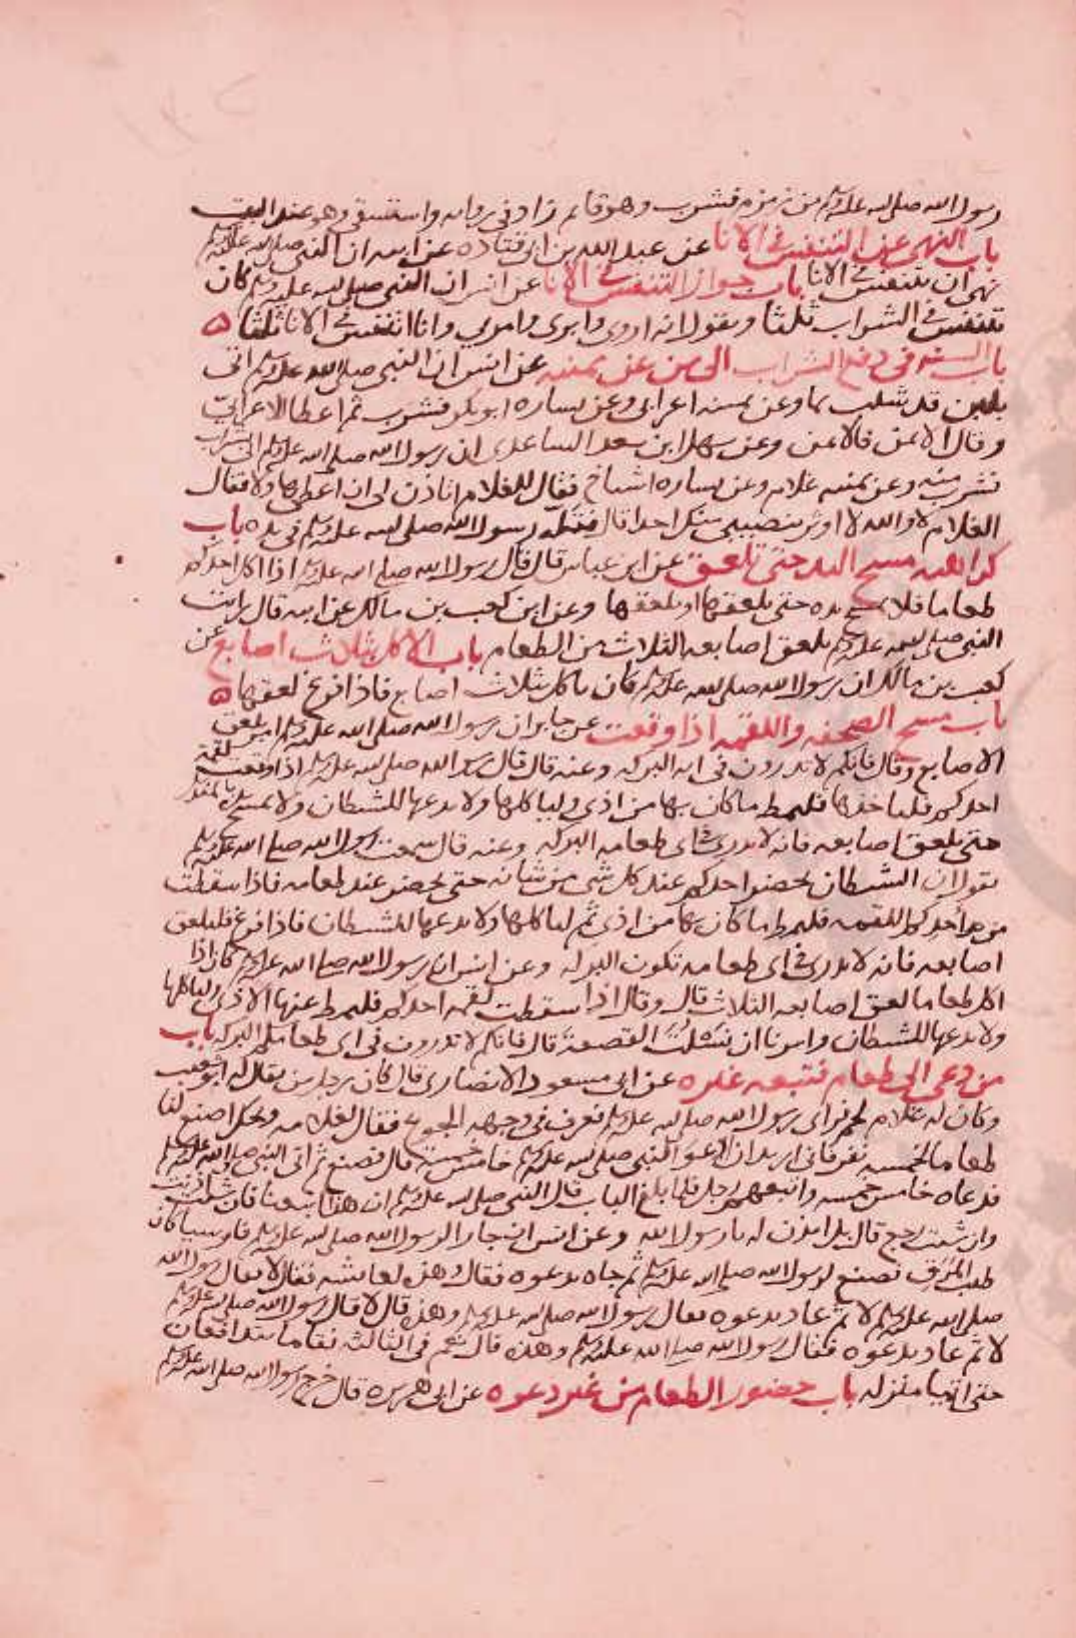 رسول الله صلى الله عليه وسلم من زمزم فشرب وهو قايم زاد في روايه واستسقى وهو عند البيت
باب النهي عن التنفس في الانا عن عبد الله بن ابي قتاده عن ابيه ان النبي صلى الله عليه وسلم
نهى ان يتنفس في الانا باب جواز التنفس في الانا عن انس ان النبي صلى الله عليه وسلم كان
يتنفس في الشراب ثلثا ويقول انه اروى وابرى وامري وانا اتنفس في الانا ثلثا ه
باب السنه في دفع الشراب الى من عن يمينه عن انس ان النبي صلى الله عليه وسلم اتى
بلبن قد شيب بما وعن يمينه اعرابي وعن يساره ابو بكر فشرب ثم اعطا الاعرابي
وقال الايمن فالايمن وعن سهل ابن سعد الساعدي ان رسول الله صلى الله عليه وسلم اتى بشراب
فشرب منه وعن يمينه غلام وعن يساره اشياخ فقال للغلام اتاذن لي ان اعطي هاولا فقال
الغلام لا والله لا اوثر بنصيبي منك احدا قال فتله رسول الله صلى الله عليه وسلم في يده باب
كراهيه مسح اليد حتى تلعق عن ابن عباس قال قال رسول الله صلى الله عليه وسلم اذا اكل احدكم
طعاما فلا يمسح يده حتى يلعقها او يلعقها وعن ابن كعب بن مالك عن ابيه قال رايت
النبي صلى الله عليه وسلم يلعق اصابعه الثلاث من الطعام باب الاكل بثلاث اصابع عن
كعب بن مالك ان رسول الله صلى الله عليه وسلم كان ياكل بثلاث اصابع فاذا فرغ لعقها ه
باب مسح الصحفه واللقمه اذا وقعت عن جابر ان رسول الله صلى الله عليه وسلم امر بلعق
الاصابع وقال فانكم لا تدرون في ايه البركه وعنه قال قال رسول الله صلى الله عليه وسلم اذا وقعت لقمة
احدكم فلياخذها فليمط ما كان بها من اذى ولياكلها ولا يدعها للشيطان ولا يمسح يده بالمنديل
حتى يلعق اصابعه فانه لا يدري في اي طعامه البركه وعنه قال سمعت رسول الله صلى الله عليه وسلم
يقول ان الشيطان يحضر احدكم عند كل شي من شانه حتى يحضر عند طعامه فاذا سقطت
من احدكم اللقمه فليمط ما كان بها من اذى ثم لياكلها ولا يدعها للشيطان فاذا فرغ فليلعق
اصابعه فانه لا يدري في اي طعامه تكون البركه وعن انس ان رسول الله صلى الله عليه وسلم كان اذا
اكل طعاما لعق اصابعه الثلاث قال وقال اذا سقطت لقمه احدكم فليمط عنها الاذى ولياكلها
ولا يدعها للشيطان وامرنا ان نسلت القصعة قال فانكم لا تدرون في اي طعامكم البركه باب
من دعي الى طعام فتبعه غيره عن ابي مسعود الانصاري قال كان رجل من يقال له ابو شعيب
وكان له غلام لحم فراى رسول الله صلى الله عليه وسلم فعرف في وجهه الجوع فقال لغلامه ويحك اصنع لنا
طعاما لخمسه نفر فاني اريد ان ادعو النبي صلى الله عليه وسلم خامس خمسة قال فصنع ثم اتى النبي صلى الله عليه وسلم
فدعاه خامس خمسه واتبعهم رجل فلما بلغ الباب قال النبي صلى الله عليه وسلم ان هذا تبعنا فان شيت اذنت
وان شيت رجع قال بل اذن له يا رسول الله وعن انس ان جارا لرسول الله صلى الله عليه وسلم فارسيا كان
طيب المرق فصنع لرسول الله صلى الله عليه وسلم ثم جاه يدعوه فقال وهذه لعايشه فقال لا فقال رسول الله
صلى الله عليه وسلم لا ثم عاد يدعوه فقال رسول الله صلى الله عليه وسلم وهذه قال لا قال رسول الله صلى الله عليه وسلم
لا ثم عاد يدعوه فقال رسول الله صلى الله عليه وسلم وهذه قال نعم في الثالثه فقاما يتدافعان
حتى اتيا منزله باب حضور الطعام من غير دعوه عن ابي هريره قال خرج رسول الله صلى الله عليه وسلم